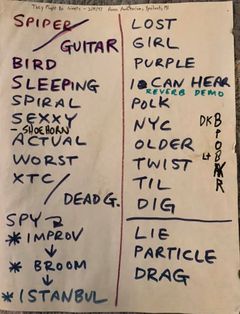 They Might Be Giants -
SPIDER
GUITAR
BIRD
SLEEPING
SPIRAL
SEXXY
- SHOEHORN
ACTUAL
WORST
XTC
DEAD G.
SPY
* IMPROV
* BROOM
* ISTANBUL
LOST
GIRL
PURPLE
I CAN HEAR
REVERB DEMO
POLK
NYC
OLDER
TWIST
TIL
DIG
LIE
PARTICLE
DRAG
DK
LT